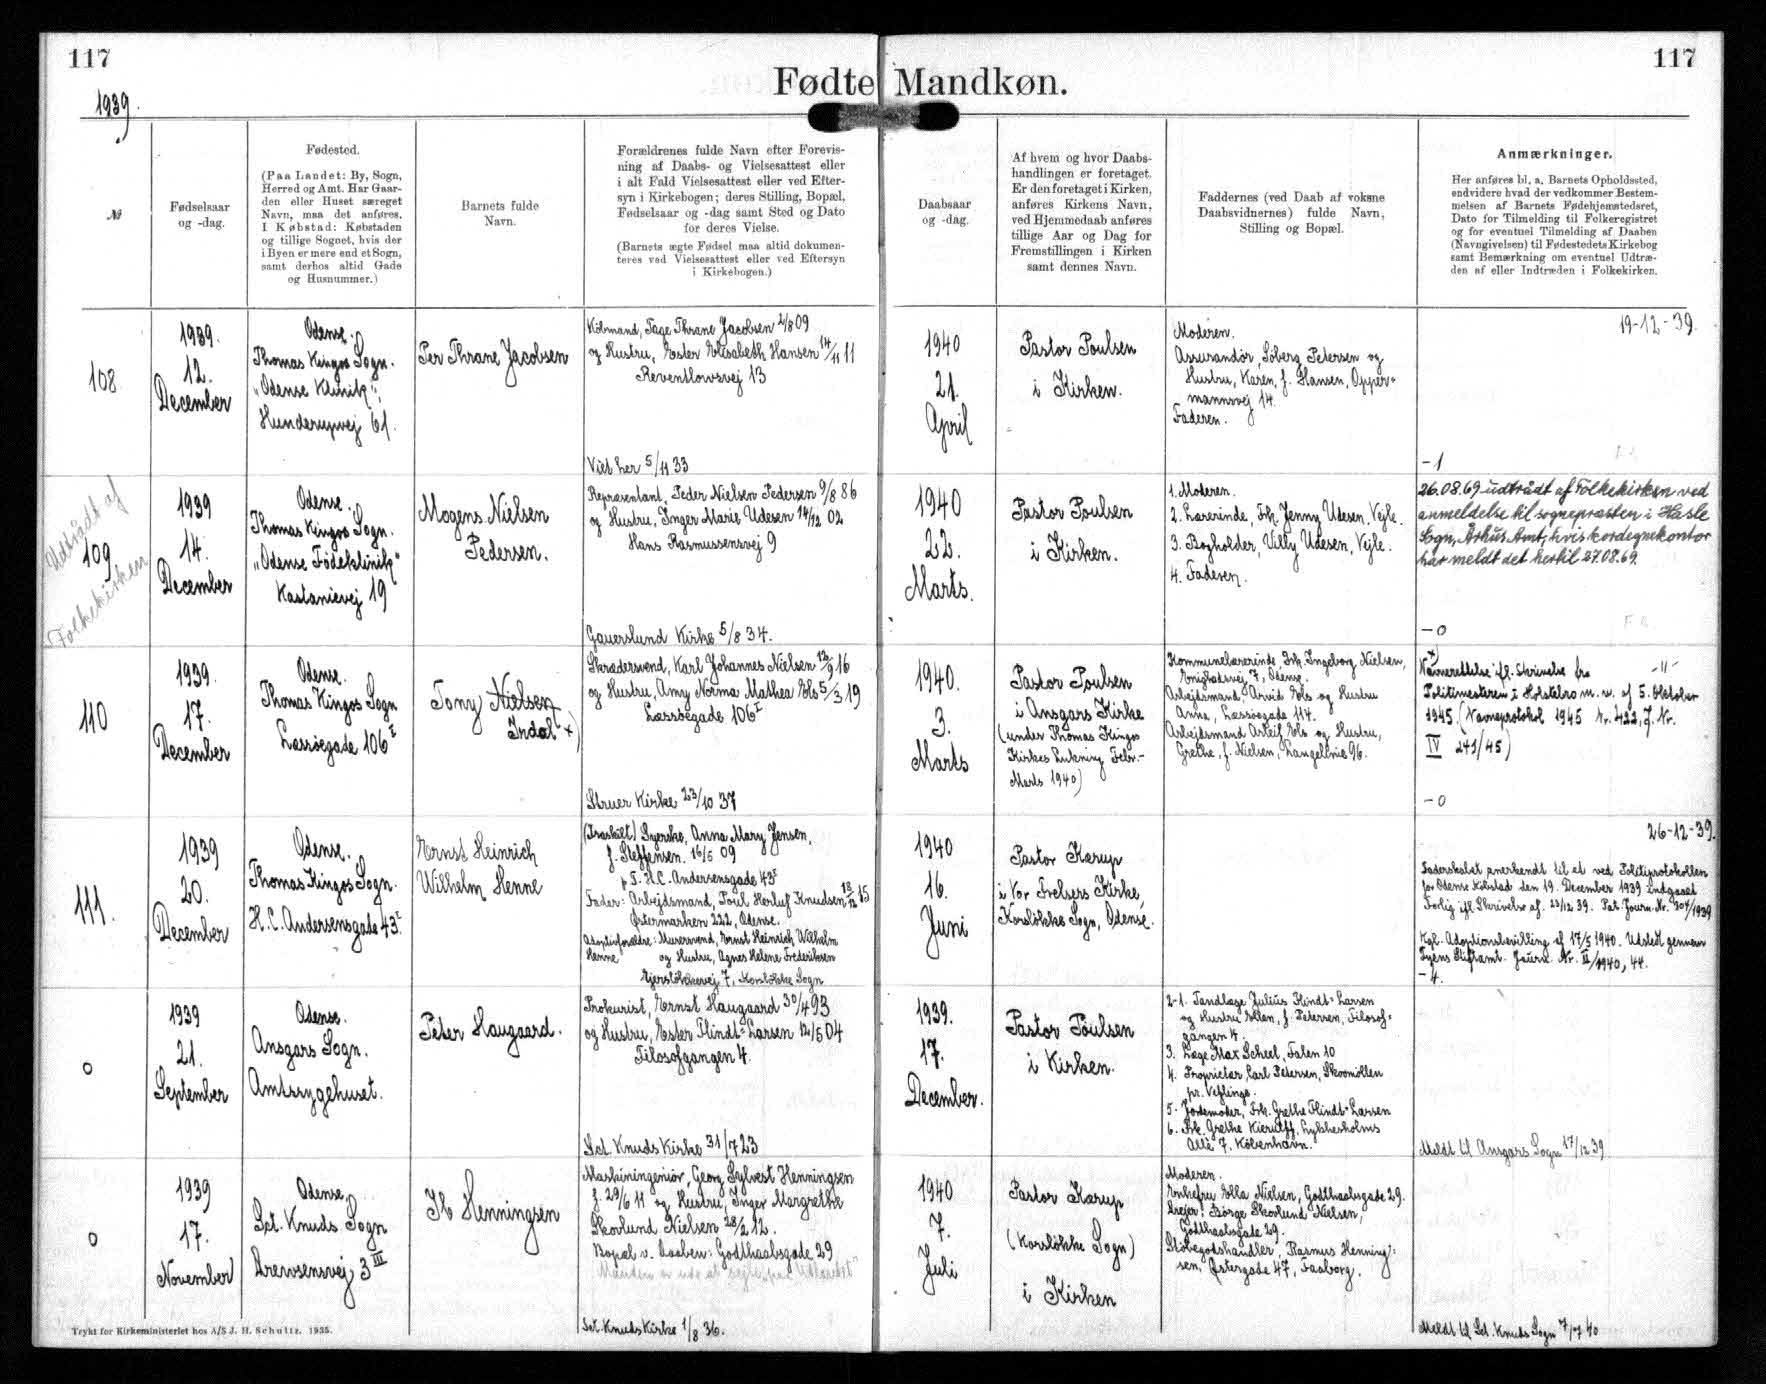 117
117
Fødte Mandkøn.
1939.
№
Fødselsaar
og -dag.
Fødested.
(Paa Landet: By, Sogn,
Herred og Amt. Har Gaar-
den eller Huset særeget
Navn, maa det anføres.
I Købstad: Købstaden
og tillige Sognet, hvis der
i Byen er mere end et Sogn,
samt derhos altid Gade
og Husnummer.)
Barnets fulde
Navn.
Forældrenes fulde Navn efter Forevis-
ning af Daabs- og Vielsesattest eller
i alt Fald Vielsesattest eller ved Efter-
syn i Kirkebogen; deres Stilling, Bopæl,
Fødselsaar og -dag samt Sted og Dato
for deres Vielse.
(Barnets ægte Fødsel maa altid dokumen-
teres ved Vielsesattest eller ved Eftersyn
i Kirkebogen.)
Daabsaar
og -dag.
Af hvem og hvor Daabs-
handlingen er foretaget.
Er den foretaget i Kirken,
anføres Kirkens Navn,
ved Hjemmedaab anføres
tillige Aar og Dag for
Fremstillingen i Kirken
samt dennes Navn.
Faddernes (ved Daab af voksne
Daabsvidnernes) fulde Navn,
Stilling og Bopæl.
Anmærkninger.
Her anføres bl. a. Barnets Opholdssted,
endvidere hvad der vedkommer Bestem-
melsen af Barnets Fødehjemstedsret,
Dato for Tilmelding til Folkeregistret
og for eventuel Tilmelding af Daaben
(Navngivelsen) til Fødestedets Kirkebog
samt Bemærkning om eventuel Udtræ-
den af eller Indtræden i Folkekirken.
108
1939.
12.
December
Odense.
Thomas Kingos Sogn.
"Odense Klinik",
Hunderupvej 61.
Per Thrane Jacobsen
Købmand, Tage Thrane Jacobsen 2/8 09
og Hustru, Ester Elisabeth Hansen 14/11 11
Reventlowsvej 13
Viet her 5/11 33
1940
21.
April
Pastor Poulsen
i Kirken.
Moderen.
Assurandør, Søberg Petersen og
Hustru, Karen, f. Hansen, Opper-
mannsvej 14.
Faderen.
19-12-39.
-1
Udtrådt af
Folkekirken
109
1939
14.
December
Odense.
Thomas Kingos Sogn.
"Odense Fødeklinik"
Kastanievej 19
Mogens Nielsen
Pedersen.
Repræsentant, Peder Nielsen Pedersen 9/8 86
og Hustru, Inger Marie Udesen 14/12 02
Hans Rasmussensvej 9
Gauerslund Kirke 5/8 34.
1940
22.
Marts.
Pastor Poulsen
i Kirken.
1. Moderen.
2. Lærerinde, Frk. Jenny Udesen, Vejle.
3. Bogholder, Villy Udesen, Vejle.
4. Faderen.
26.08.69 udtrådt af Folkekirken ved
anmeldelse til sognepræsten i Hasle
Sogn, Århus Amt, hvis kordegnekontor
har meldt det hertil 27.08.69.
-0
110
1939.
17.
December
Odense.
Thomas Kingos Sogn
Læssøegade 106 I
Tony Nielsen
Indal +)
Skrædersvend, Karl Johannes Nielsen 12/9 16
og Hustru, Amy Norma Mathea Els 5/3 19
Læssøegade 106 I
Struer Kirke 23/10 37
1940.
3.
Marts
Pastor Poulsen
i Ansgars Kirke
(under Thomas Kingos
Kirkes Lukning Febr.-
Marts 1940)
Kommunelærerinde, Frk. Ingeborg Nielsen,
Enighedsvej 7, Odense.
Arbejdsmand, Arvid Els og Hustru
Anna, Læssøegade 114.
Arbejdsmand Els og Hustru,
Grethe, f. Nielsen, Langelinie 96.
-"-
+
Navnerettelse ifl. Skrivelse fra
Politimesteren i Holstebro m.v. af 5. Oktober
1945. (Navneprotokol 1945 Nr. 422, J. Nr.
IV 241/45)
-0
111.
1939
20.
December
Odense.
Thomas Kingos Sogn.
H.C. Andersensgade 43 I
Ernst Heinrich
Wilhelm Henne
(Fraskilt) Syerske, Anna Mary Jensen,
f. Steffensen. 16/5 09
H.C. Andersensgade 43 I
Fader: Arbejdsmand, Poul Herluf Knudsen 18/12 15
Østermarken 222, Odense.
Adoptivforældre: Murersvend, Ernst Heinrich Wilhelm
Henne og Hustru, Agnes Helene Frederiksen
Ejerslykkevej 7, Korsløkke Sogn
1940
16.
Juni
Pastor Karup
i Vor Frelsers Kirke,
Korsløkke Sogn, Odense.
26-12-39.
Faderskabet anerkendt til at ved Politiprotokollen
for Odense Købstad den 19. December 1939 indgaaet
Forlig ifl. Skrivelse af 23/12 39. Pat. Journ. Nr. 304/1939
Kgl. Adoptionsbevilling af 17/5 1940. Udstedt gennem
Fyens Stiftamt. Journ. Nr. II/1940, 44.
-4.
0
1939
21.
September
Odense.
Ansgars Sogn.
Amtssygehuset.
Peter Haugaard.
Prokurist, Ernst Haugaard 30/4 93
og Hustru, Ester Flindt-Larsen 12/5 04
Filosofgangen 4.
Sct. Knuds Kirke 31/7 23
1939.
17.
December.
Pastor Poulsen
i Kirken.
2-1. Tandlæge Julius Flindt-Larsen
og Hustru Ellen, f. Petersen, Filosof-
gangen 4.
3. Læge Max Scheel, Falen 10
4. Proprietær, Carl Petersen, Skovmøllen
pr. Veflinge.
5. Jordemoder, Frk. Grethe Flindt-Larsen
6. Frk. Grethe Kierulff,
Allé 7. København.
Meldt til Ansgars Sogn 17/12 39
0
1939
17.
November
Odense,
Sct. Knuds Sogn
Drewsensvej 3 III
Ib Henningsen
Maskiningeniør, Georg Sylvest Henningsen
f. 29/6 11 og Hustru, Inger Margrethe
Skovlund Nielsen 28/2 12.
Bopæl v. Daaben: Godthaabsgade 29
Manden er ude at sejle,
Sct. Knuds Kirke 1/8 36.
1940
7.
Juli
Pastor Karup
(Korsløkke Sogn)
i Kirken
Moderen.
Enkefru Ella Nielsen, Godthaabsgade 29.
Drejer: Børge Skovlund Nielsen,
Godthaabsgade 29.
Støbegodshandler, Rasmus Henning-
sen, Østergade 47, Faaborg.
Meldt til Sct. Knuds Sogn 7/7 40
Trykt for Kirkeministeriet hos A/S J. H. Schultz. 1935.